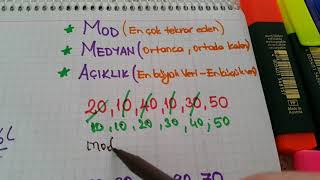 * MOD (En çok tekrar eden)
* MEDYAN (Ortanca, ortada kalan)
* AÇIKLIK (En büyük Veri - En küçük veri)
20, 10, 40, 10, 30, 50
10, 10, 20, 30, 40, 50
mod